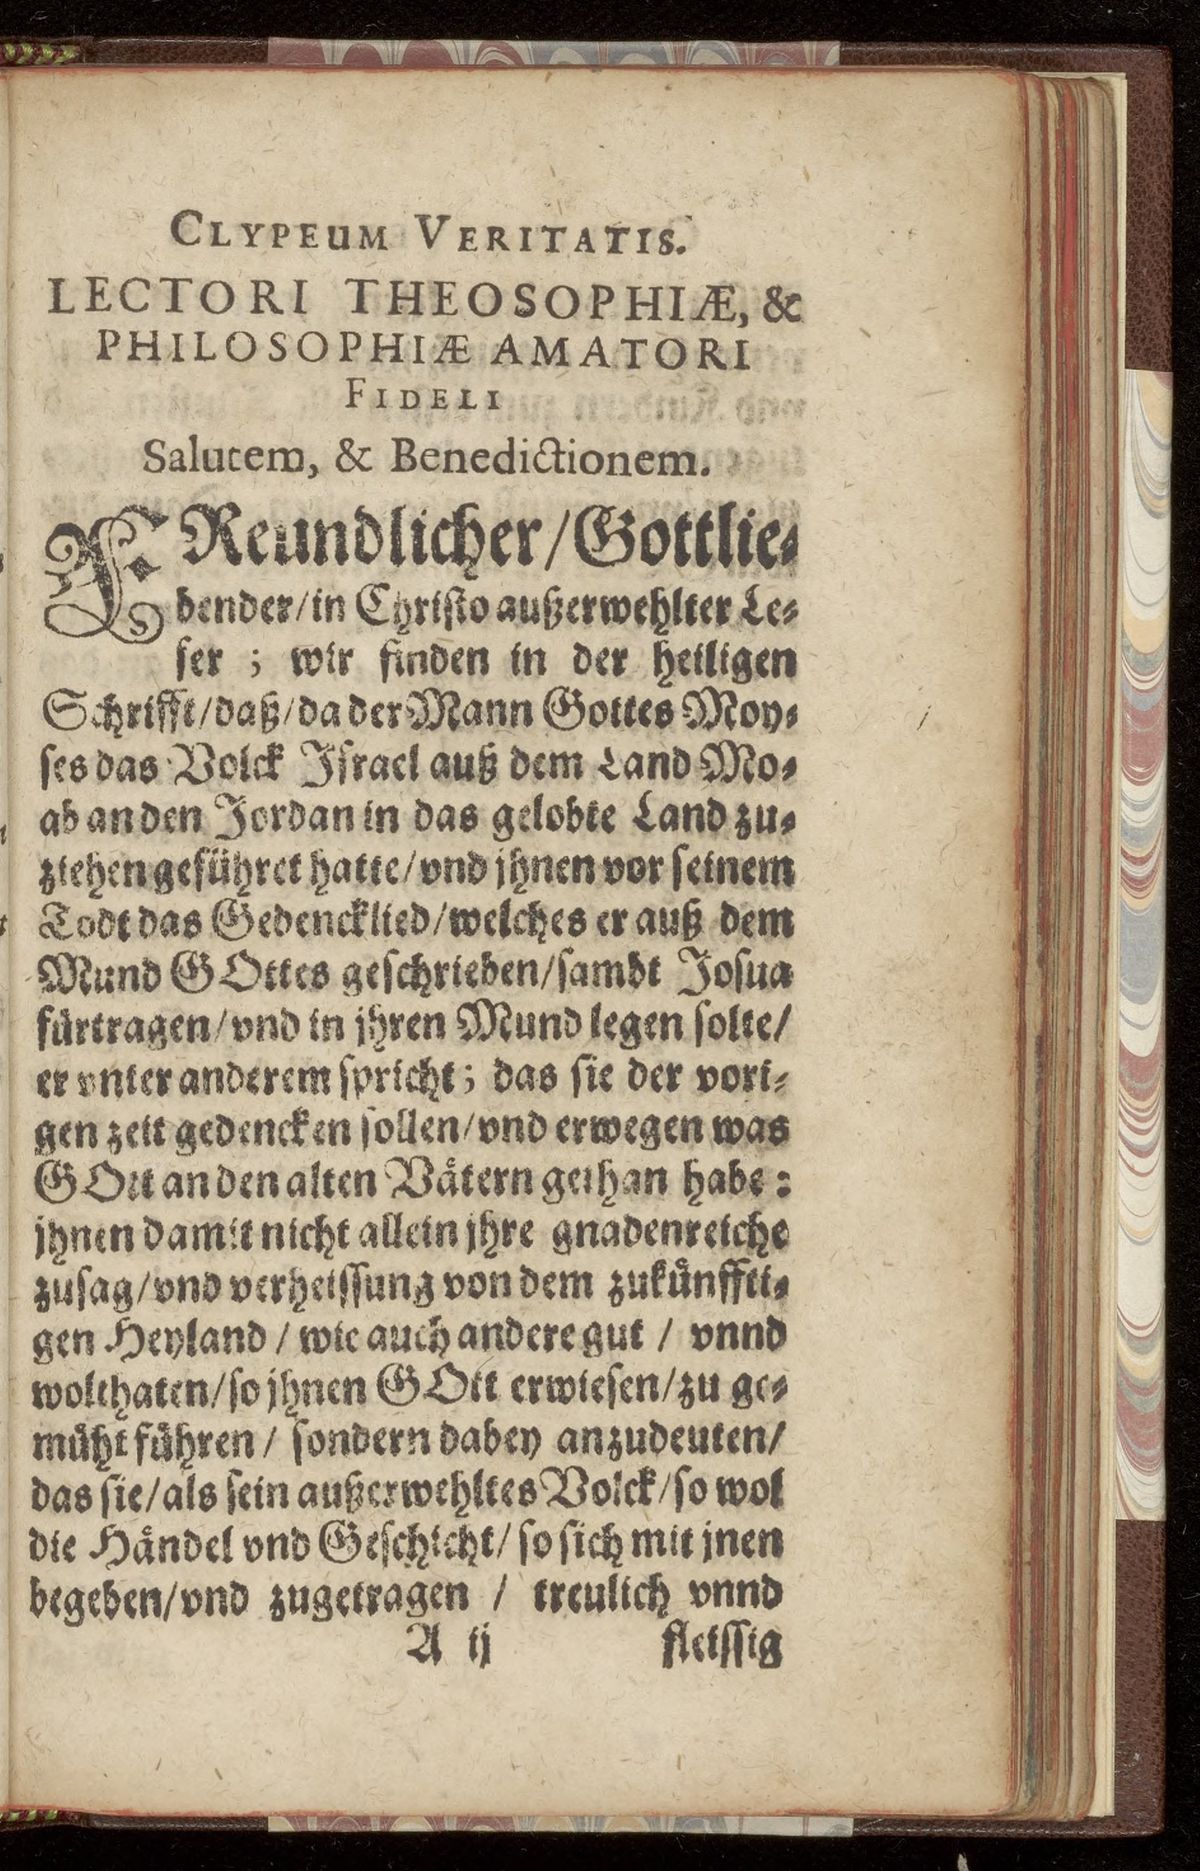 CLYPEUM VERITATIS.
LECTORI THEOSOPHIÆ, &
PHILOSOPHIÆ AMATORI
FIDELI
Salutem, & Benedictionem.
FReundlicher/Gottlie-
bender/in Christo außerwehlter Le-
ser ; wir finden in der heiligen
Schrifft/daß/da der Mann Gottes Moy-
ses das Volck Israel auß dem Land Mo-
ab an den Jordan in das gelobte Land zu-
ziehen geführet hatte/vnd jhnen vor seinem
Todt das Gedencklied/welches er auß dem
Mund GOttes geschrieben/sambt Josua
fürtragen/vnd in jhren Mund legen solte/
er vnter anderem spricht; das sie der vori-
gen zeit gedencken sollen/vnd erwegen was
GOtt an den alten Vätern gethan habe:
jhnen damit nicht allein jhre gnadenreiche
zusag/vnd verheissung von dem zukünffti-
gen Heyland / wie auch andere gut / vnnd
wolthaten/so jhnen GOtt erwiesen/zu ge-
müht führen / sondern dabey anzudeuten/
das sie/als sein außerwehltes Volck/so wol
die Händel vnd Geschicht/ so sich mit jnen
begeben/vnd zugetragen / treulich vnnd
A ij fleissig